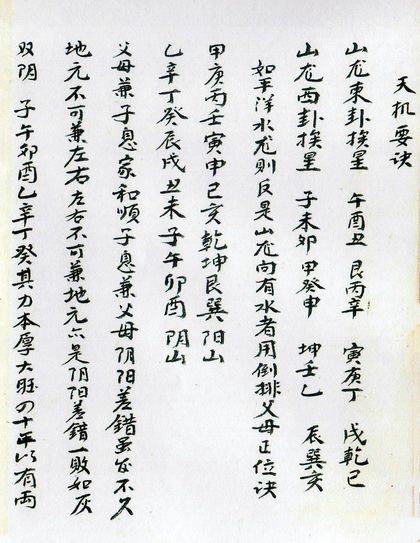 天机要诀
山龙東卦挨星 午酉丑 艮丙辛 寅庚丁 戌乾巳
山龙西卦挨星 子未卯 甲癸申 坤壬乙 辰巽亥
如平洋水龙则反是山龙向有水者用倒排父母正位诀
甲庚丙壬寅申巳亥乾坤艮巽阳山
乙辛丁癸辰戌丑未子午卯酉阴山
父母兼子息家和順子息兼父母阴阳差错虽  不久
地元不可兼左右左右不可兼地元亦是阴阳差错一败如灰
双阴 子午卯酉乙辛丁癸其力本厚大旺四十年以有两